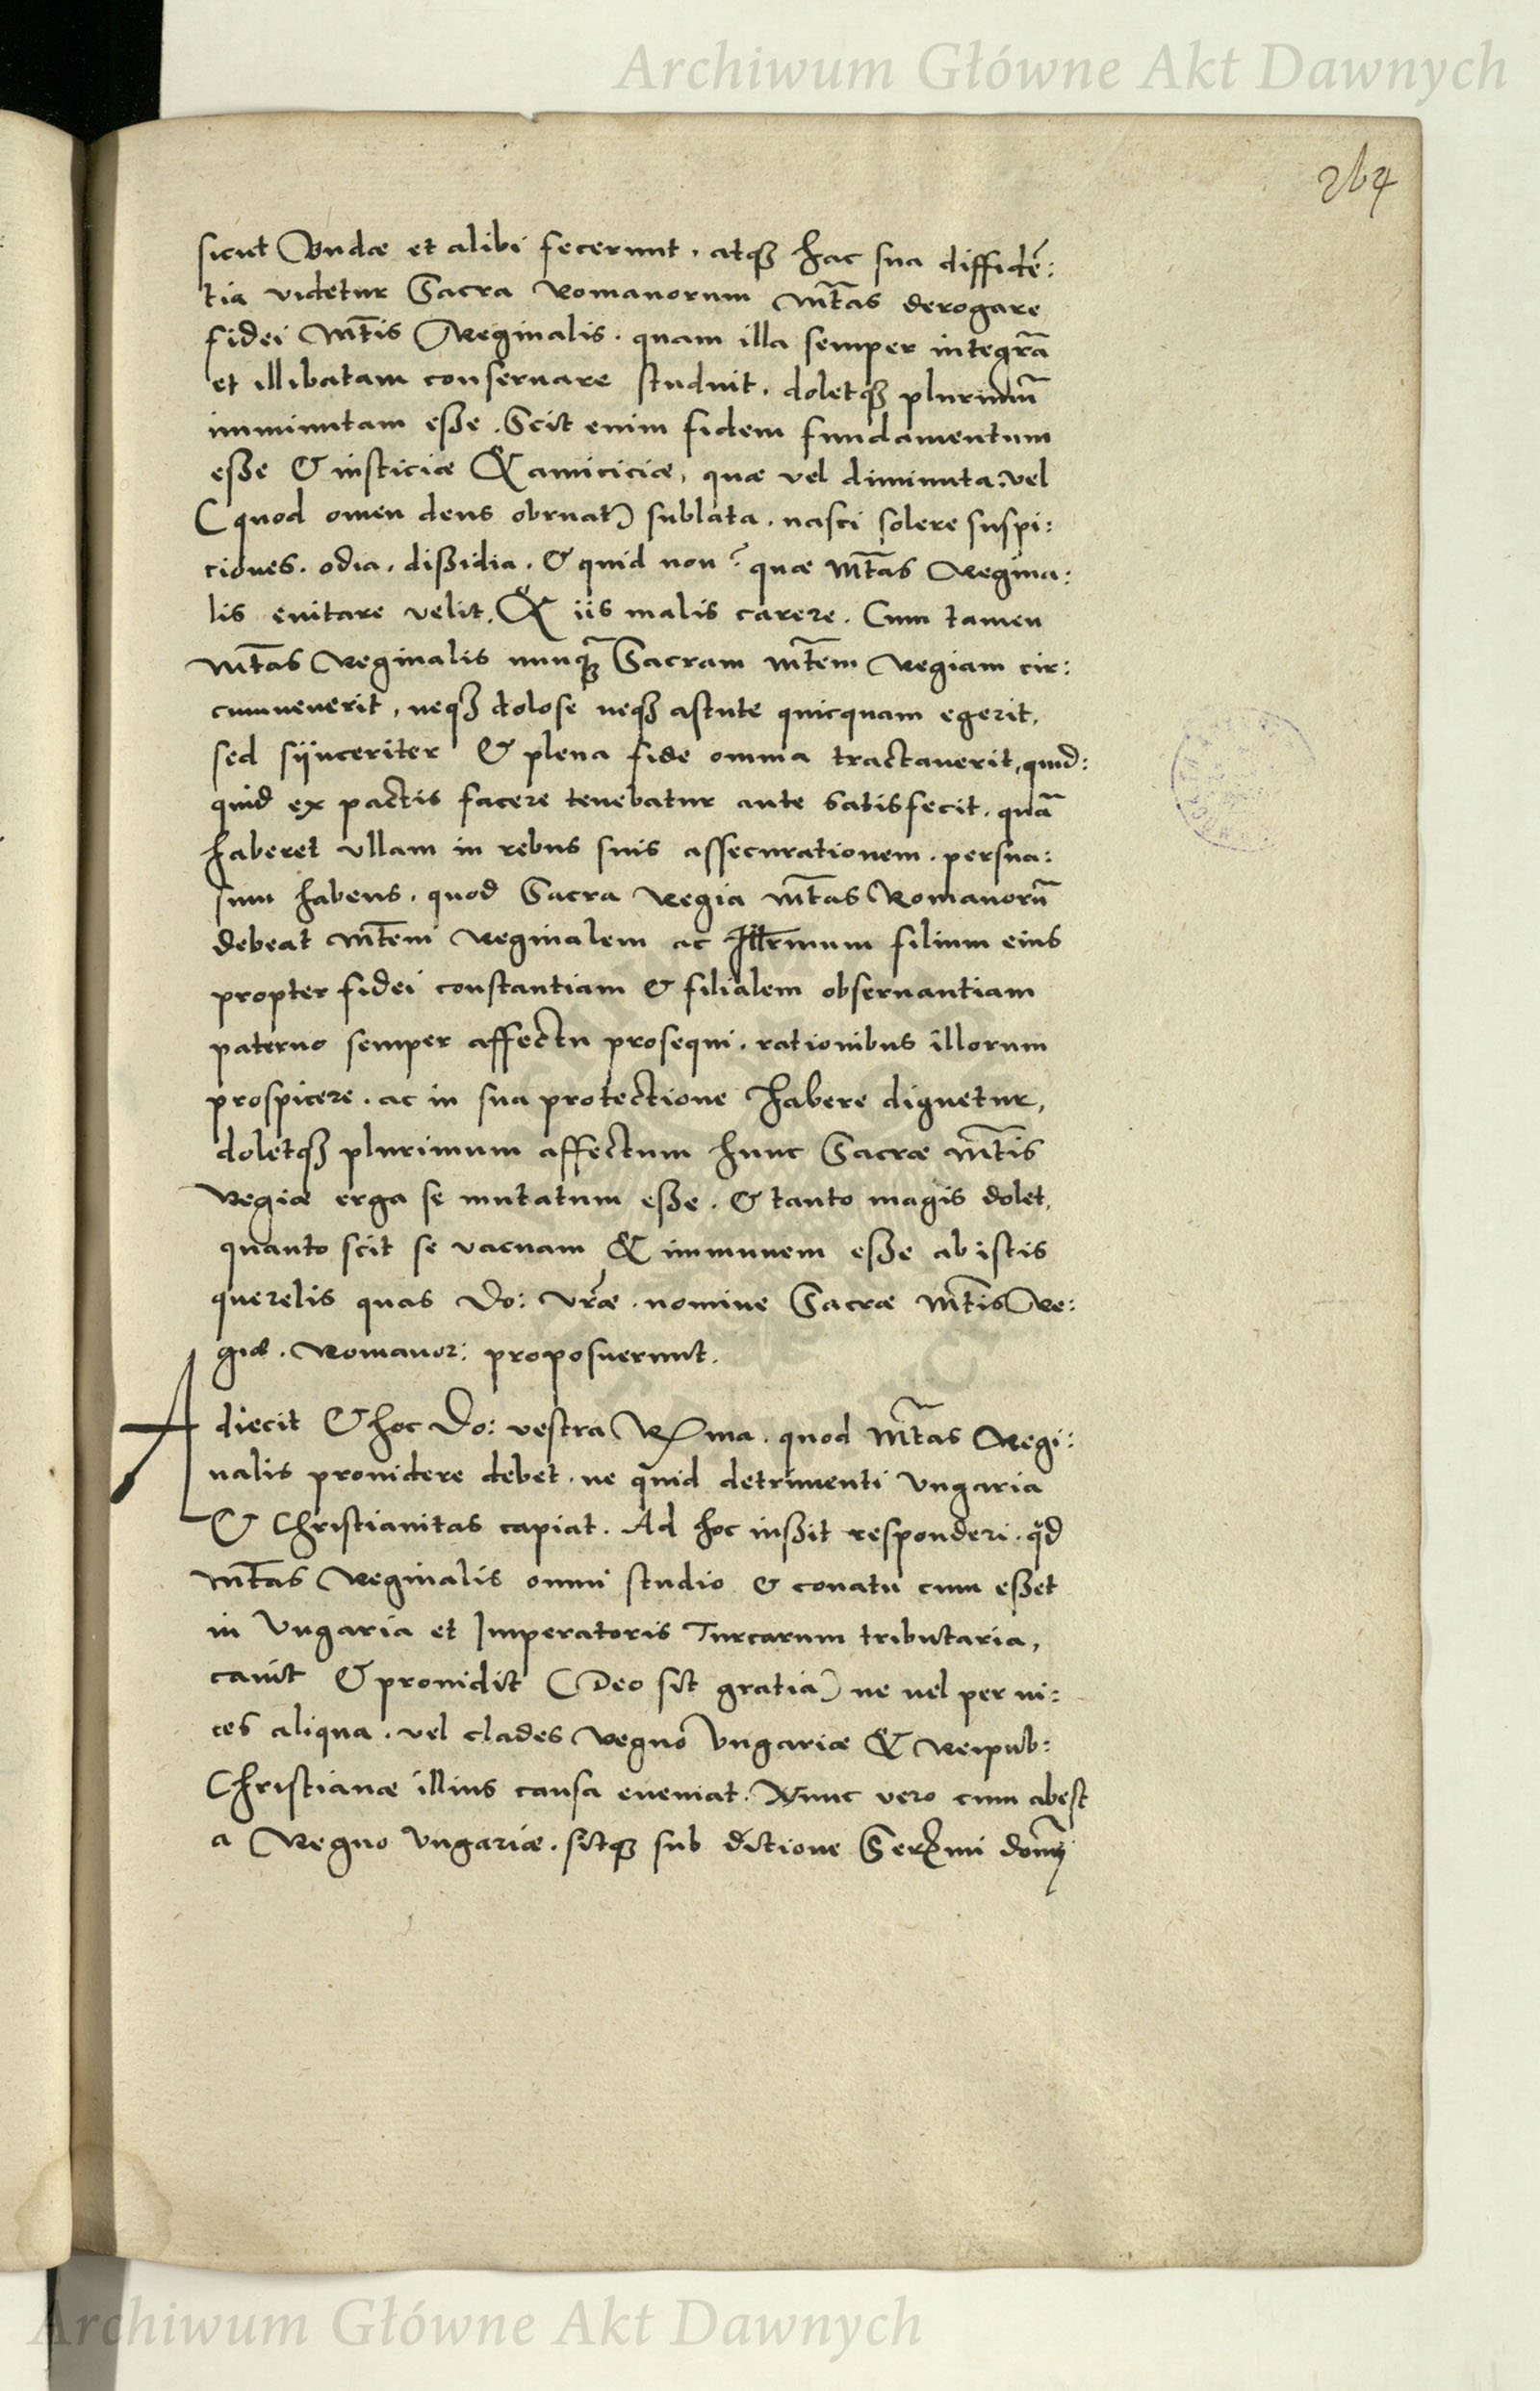 Archiwum Główne Akt Dawnych
264
sicut Budæ et alibi fecerunt, atqꝫ hac sua diffidē:
tia videtur Sacra Romanorum Mt̃as derogare
fidei Mt̃is Reginalis. quam illa semper integrā
et illibatam conseruare studuit, doletqꝫ plurimū
imminutam eße. Scit enim fidem fundamentum
eße & iusticiæ & amiciciæ, quæ vel diminuta: vel
(quod omen deus obruat) sublata. nasci solere suspi:
ciones. odia. dißidia. & quid non? quæ Mt̃as Regina:
lis euitare velit. & iis malis carere. Cum tamen
Mt̃as Reginalis nunqꝫ Sacram Mt̃em Regiam cir:
cumuenerit, neqꝫ dolose neqꝫ astute quicquam egerit,
sed sÿnceriter & plena fide omnia tractauerit, quid:
quid ex pactis facere tenebatur ante satisfecit. quā
haberet vllam in rebus suis assecurationem. persua:
sum habens. quod Sacra Regia Mt̃as Romanorū
debeat Mt̃em Reginalem ac Illr̃mum filium eius
propter fidei constantiam & filialem obseruantiam
paterno semper affectu prosequi. rationibus illorum
prospicere. ac in sua protectione habere dignetur,
doletqꝫ plurimum affectum hunc Sacræ Mt̃is
Regiæ erga se mutatum eße. & tanto magis dolet,
quanto scit se vacuam & immunem eße ab istis
querelis quas Do: vr̃æ. nomine Sacræ Mt̃is Re:
giæ. Romanor: proposuerunt.
Adiecit & hoc Do: vestra Rma. quod Mt̃as Regi:
nalis prouidere debet. ne quid detrimenti Vngaria
& Christianitas capiat. Ad hoc iußit responderi. qd
Mt̃as Reginalis omni studio & conatu cum eßet
in Vngaria et Imperatoris Turcarum tributaria,
cauit & prouidit (Deo sit gratia) ne vel per ni:
ces aliqua. vel clades Regno Vngariæ & Reipub:
Christianæ illius causa eueniat. Nunc vero cum abest
a Regno Vngariæ. sitqꝫ sub ditione Serᵐⁱ domⁱ
Archiwum Główne Akt Dawnych